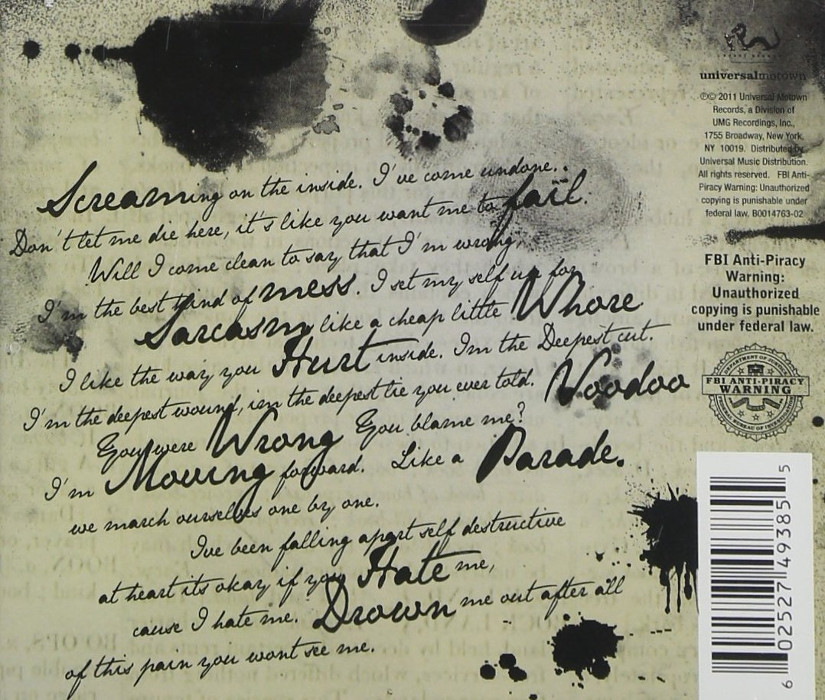 Screaming on the inside. I've come undone..
Don't let me die here, it's like you want me to fail.
Will I come clean to say that I'm wrong,
I'm the best kind of mess. I set my self up for
Sarcasm like a cheap little Whore
I like the way you Hurt inside. Im the Deepest cut.
I'm the deepest wound, im the deepest lie you ever told. Voodoo
You were Wrong You blame me?
I'm Moving forward. Like a Parade.
we march ourselves one by one.
I've been falling apart self destructive
at heart its okay if you Hate me,
cause I hate me. Drown me out after all
of this pain you wont see me.
universal motown
℗© 2011 Universal Motown
Records, a Division of
UMG Recordings, Inc.,
1755 Broadway, New York,
NY 10019. Distributed by
Universal Music Distribution.
All rights reserved. FBI Anti-
Piracy Warning: Unauthorized
copying is punishable under
federal law. B0014763-02
FBI Anti-Piracy
Warning:
Unauthorized
copying is punishable
under federal law.
FBI ANTI-PIRACY
WARNING
6 02527 49385 5